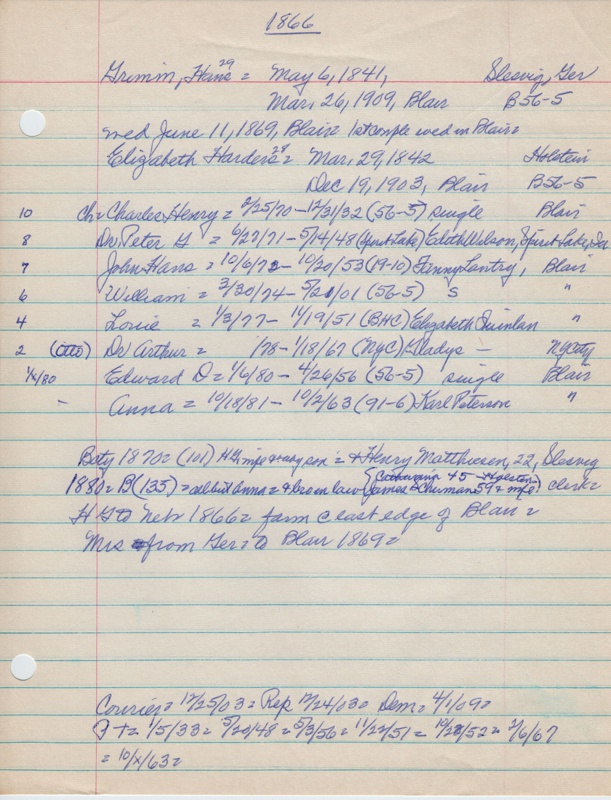 1866
Grimm, Hans 29 = May 6, 1841, Slesvig, Ger
Mar. 26, 1909, Blair B56-5
wed June 11, 1869, Blair = 1st couple wed in Blair =
Elizabeth Harders 28 = Mar. 29, 1842 Holstein
Dec 19, 1903, Blair B56-5
10 ch = Charles Henry = 2/25/70 - 12/31/32 (56-5) single Blair
8 Dr. Peter H = 6/27/71 - 5/14/48 (Spirit Lake) Edith Wilson, Spirit Lake, Ia
7 John Hans = 10/6/72 - 10/20/53 (19-10) Fanny Lantry, Blair
6 William = 3/30/74 - 5/21/01 (56-5) S "
4 Louie = 1/3/77 - 11/19/51 (BHC) Elizabeth Quinlan "
2 (Otto) Dr Arthur = /78 - 1/18/67 (NYC) Gladys - NYCity
1/x/80 Edward D = 1/6/80 - 4/26/56 (56-5) single Blair
- Anna = 10/18/81 - 10/2/63 (91-6) Karl Peterson "
Bcty 1870 = (101) H Grimm = + Henry Matthiesen, 22, Slesvig
1880 = B(135) = all but Anna = + bro en law { Catharina 45 Holstein clerk
James 59 + wife
H G to Nebr 1866 = farm c east edge of Blair =
Mrs from Ger = to Blair 1869 =
Courier = 12/25/03 = Rep 12/24/03 = Dem = 4/1/09 =
P + = 1/5/33 = 5/20/48 = 5/3/56 = 11/22/51 = 10/22/52 = 2/6/67
= 10/x/63 =